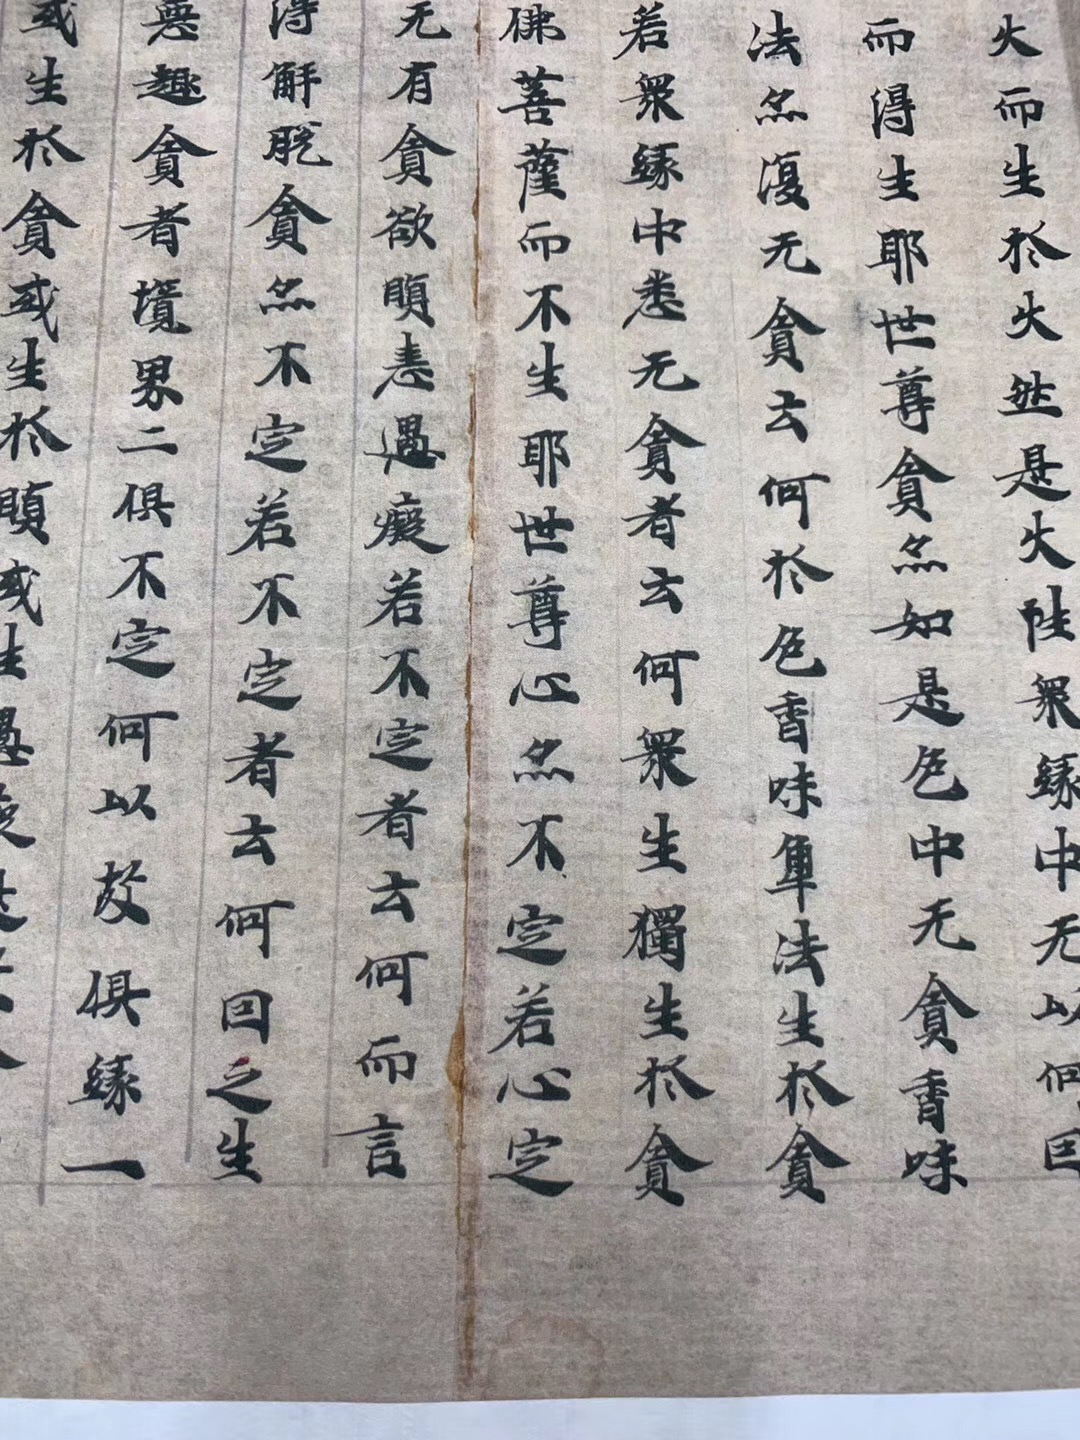 火而生於火然是火陁衆緣中无以何因
而得生耶世尊貪亦如是色中无貪香味
法亦復无貪云何於色香味單法生於貪
若衆緣中悉无貪者云何衆生獨生於貪
佛菩薩而不生耶世尊心亦不定若心定
无有貪欲瞋恚愚癡若不定者云何而言
得解脫貪亦不定若不定者云何因之生
惡趣貪者境界二俱不定何以故俱緣一
或生於貪或生於瞋或生愚